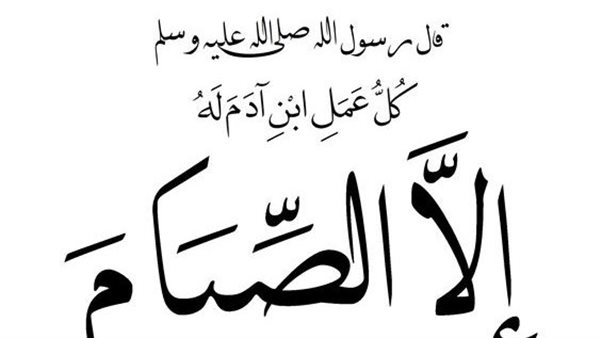 قال رسول الله صلى الله عليه وسلم
كُلُّ عَمَلِ ابْنِ آدَمَ لَهُ
إِلاَّ الصِّيَامَ